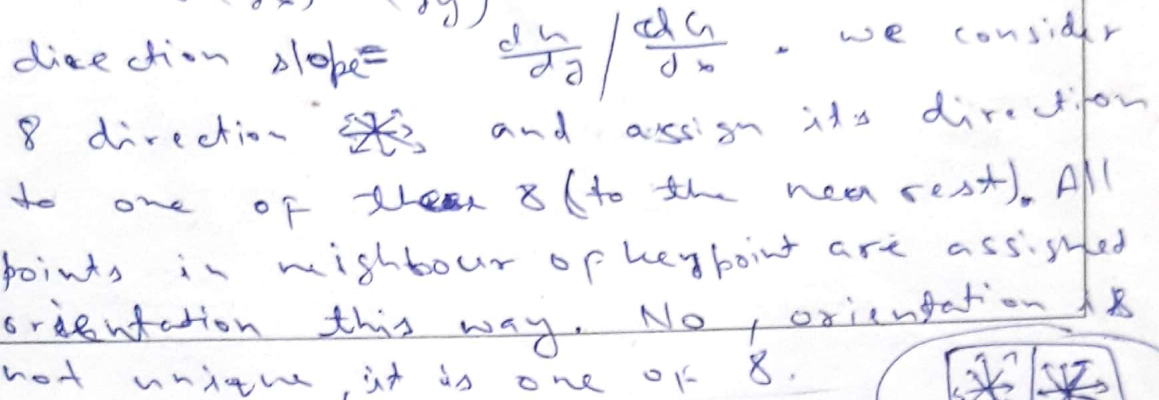 direction slope= dh/dy / dG/dx . we consider
8 direction and assign its direction
to one of these 8 (to the nearest). All
points in neighbour of keypoint are assigned
orientation this way. No, orientation is
not unique, it is one of 8.